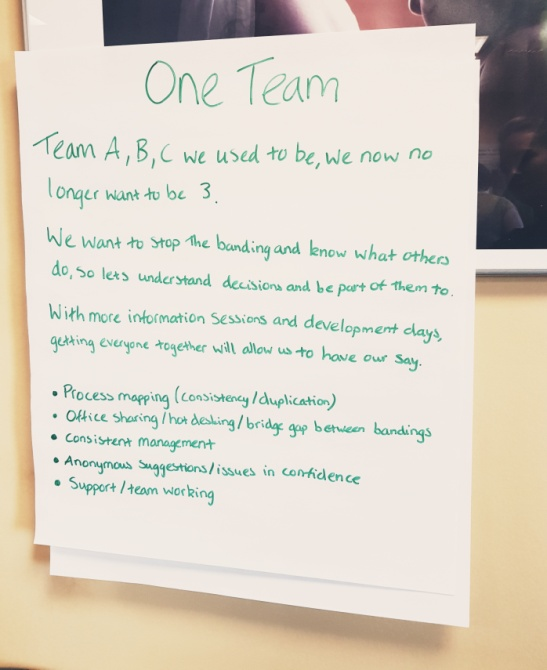 One Team
Team A, B, C we used to be, we now no
longer want to be 3.
We want to stop the banding and know what others
do, so lets understand decisions and be part of them to.
With more information sessions and development days,
getting everyone together will allow us to have our say.
• Process mapping (consistency/duplication)
• Office sharing/hot desking/bridge gap between bandings
• Consistent management
• Anonymous suggestions/issues in confidence
• Support/team working